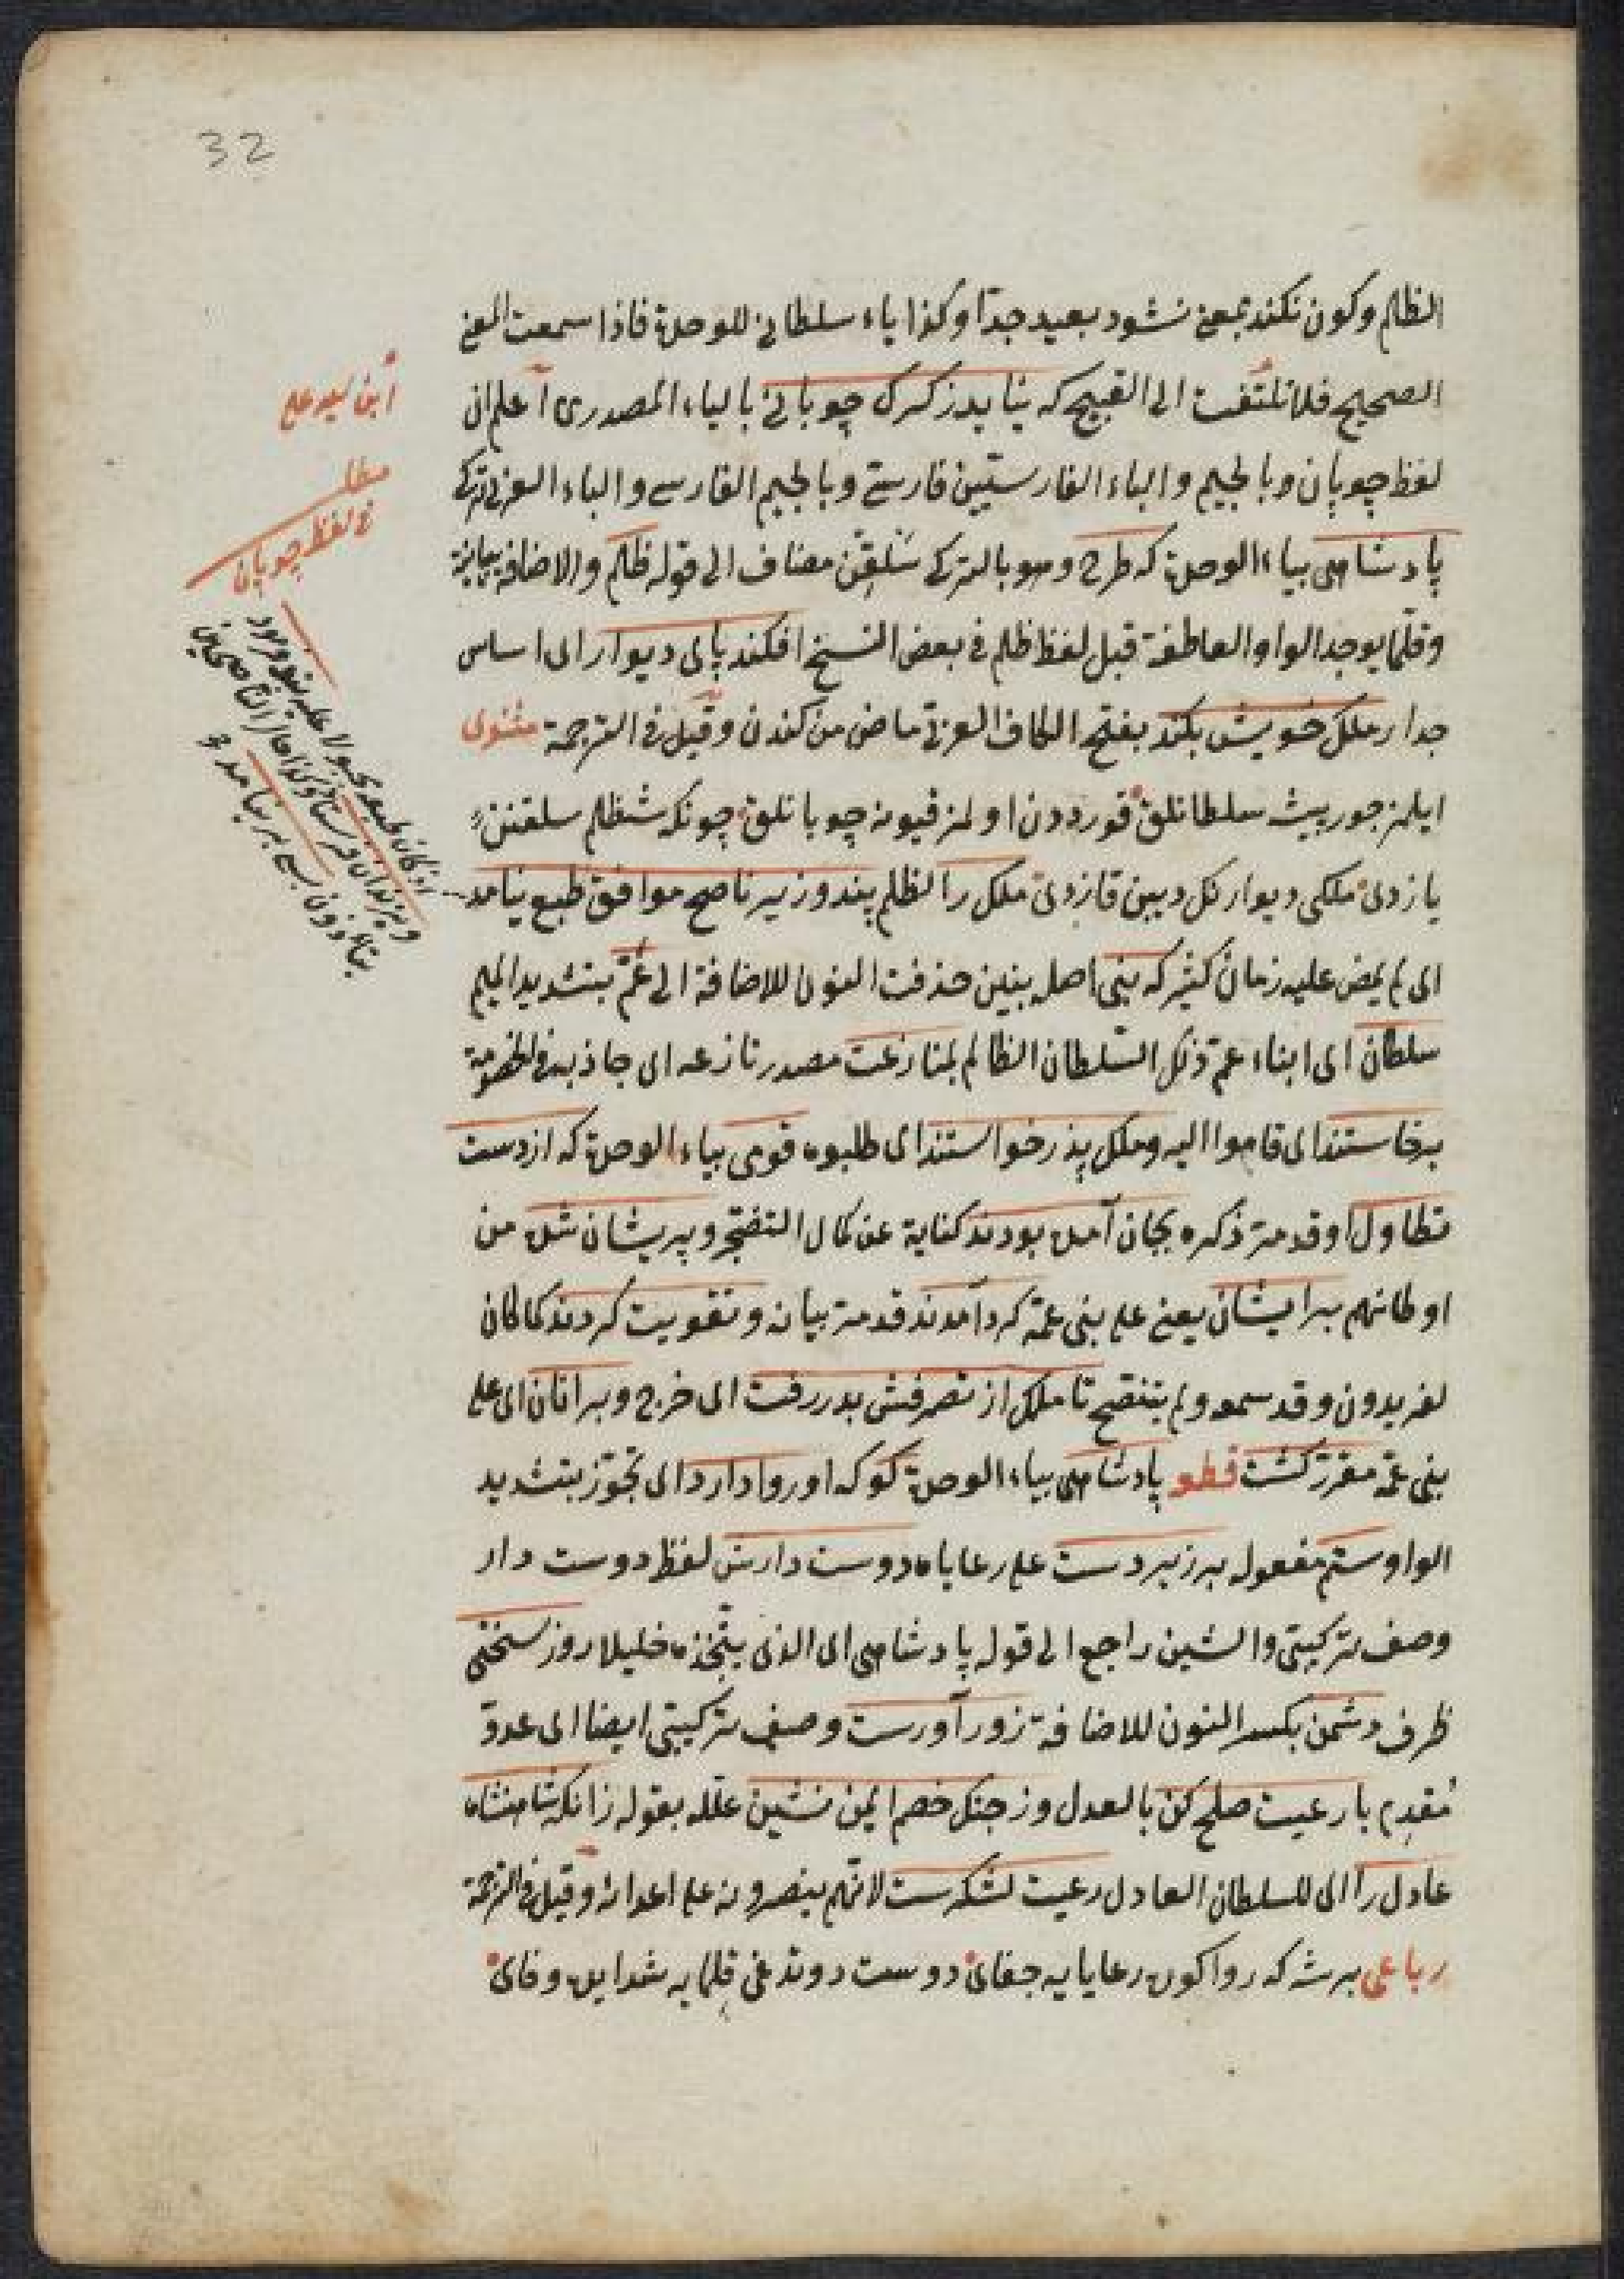 32
الظالم وكون نكند بمعنى نشود بعيد جدّا وكذا ياء سلطانى للوحدة فاذا سمعت المعنى
الصحيح فلا تلتفت الى القبيح كه نيايد ز كرك چوپانى بالياء المصدرى اعلم ان
لفظ چوپان وبالجيم والباء الفارسيّتين فارسىّ وبالجيم الفارسى والباء العربى تركى
پادشاهى بياء الوحدة كه طرح وهو بالتركى مضاف الى قوله ظلم والاضافة بيانية
وقلّما يوجد الواو العاطفة قبل لفظ ظلم فى بعض النسخ افكند پاى ديوار اى اساس
جدار ملك خويش بكند بفتح الكاف العربى ماضى من كندن وقيل فى الترجمة مثنوى
ايلمز جورپيشه سلطانلق قورددن اولمز قيونه چوبانلق چونكه شه ظلم
يازدى ملكى ديوارنك ديبن قازدى ملك را لظلم پند وزير ناصح موافق طبع نيامد
اى لم يمض عليه زمان كثير كه بنى اصله بنين حذفت النون للاضافة الى عمّ بتشديد الميم
سلطان اى ابناء عم ذلك السّلطان الظالم بمنازعت مصدر نازعه اى جاذبه فى الخصومة
برخاستند اى قاموا اليه وملك پدر خواستند اى طلبوه قومى بياء الوحدة كه از دست
تطاول او قد مرّ ذكره بجان آمده بودند كناية عن كمال التضجر وپريشان شده من
اوطانهم بر ايشان يعنى على بنى عمّه كرد آمدند قد مرّ بيانه وتقويت كردند كما كان
لفريدون وقد سمعه ولم يتنصح تا ملك از تصرفش بدر رفت اى خرج وبر آنان اى على
بنى عمّه مقرّر كشت قطعه پادشاهى بياء الوحدة كو كه او روا دارد اى تجوّز بتشديد
الواو ستم مفعوله بر زير دست على رعاياه دوست دارش لفظ دوست دار
وصف تركيبى والشين راجع الى قوله پادشاهى اى الذى يتّخذه خليلا روز سختى
ظرف دشمن بكسر النون للاضافة زور آورست وصف تركيبى ايضا اى عدوّ
مُقدِم با رعيت صلح كن بالعدل وز جنك خصم ايمن نشين علّله بقوله زانكه شاهنشاه
عادل را اى للسلطان العادل رعيت لشكرست لانّهم ينصرونه على اعدائه وقيل فى الترجمة
رباعى برشه كه روا كوره رعايايه جفايى دوست دوندغى قلمايه شدايده وفايى
مطلب
فى لفظ چوپان